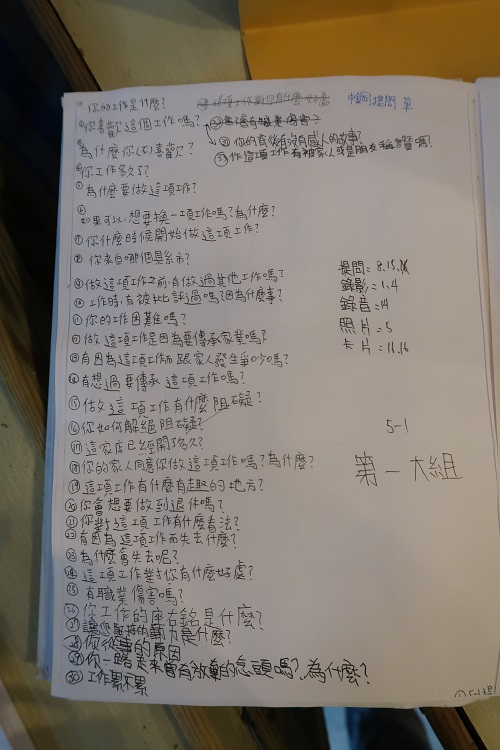 ①你的工作是什麼?
②你喜歡這個工作嗎?
③為什麼你(不)喜歡?
④你工作多久了?
⑤為什麼要做這項工作?
⑥如果可以,想要換一項工作嗎?為什麼?
⑦你什麼時候開始做這項工作?
⑧你來自哪個縣市?
⑨做這項工作之前,有做過其他工作嗎?
⑩工作時,有被批評過嗎?因為什麼事?
⑪你的工作困難嗎?
⑫做這項工作是因為要傳承家業嗎?
⑬有因為這項工作而跟家人發生爭吵嗎?
⑭有想過要傳承這項工作嗎?
⑮做這項工作有什麼阻礙?
⑯你如何解絕阻礙?
⑰這家店已經開了多久?
⑱你的家人同意你做這項工作嗎?為什麼?
⑲這項工作有什麼有趣的地方?
⑳你會想要做到退休嗎?
㉑你對這項工作有什麼看法?
㉒有因為這項工作而失去什麼?
㉓為什麼會失去呢?
㉔這項工作對你有什麼好處?
㉕有職業傷害嗎?
㉖你工作的座右銘是什麼?
㉗讓您堅持的動力是什麼?
㉘你從事的原因
㉙你一路走來曾有放棄的念頭嗎?為什麼?
㉚工作累不累
你的背後有沒有感人的故事?
作這項工作有被家人或是朋友稱讚嗎?
提問單
提問=8.15.
錄影=1.4
錄音=14
照片=5
卡片=11.16
5-1
第一大組